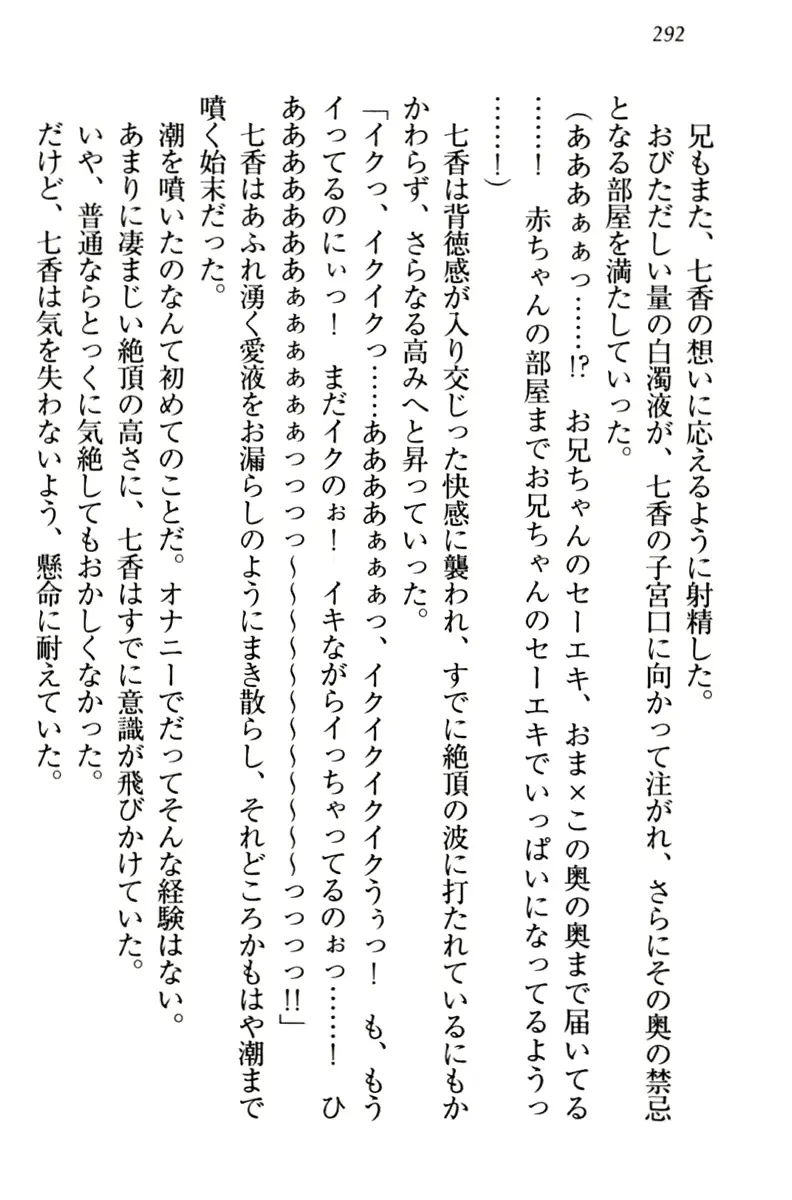 292
兄もまた、七香の想いに応えるように射精した。
おびただしい量の白濁液が、七香の子宮口に向かって注がれ、さらにその奥の禁忌
となる部屋を満たしていった。
（あああぁぁっ……⁉　お兄ちゃんのセーエキ、おま×この奥の奥まで届いてる
……！　赤ちゃんの部屋までお兄ちゃんのセーエキでいっぱいになってるようっ
……！）
七香は背徳感が入り交じった快感に襲われ、すでに絶頂の波に打たれているにもか
かわらず、さらなる高みへと昇っていった。
「イクっ、イクイクっ……ああああぁぁぁっ、イクイクイクイクうぅっ！　も、もう
イってるのにぃっ！　まだイクのぉ！　イキながらイっちゃってるのぉっ……！　ひ
あああああああぁぁぁぁぁぁぁっっっっ～～～～～～～～～～～っっっっ‼」
七香はあふれ湧く愛液をお漏らしのようにまき散らし、それどころかもはや潮まで
噴く始末だった。
潮を噴いたのなんて初めてのことだ。オナニーでだってそんな経験はない。
あまりに凄まじい絶頂の高さに、七香はすでに意識が飛びかけていた。
いや、普通ならとっくに気絶してもおかしくなかった。
だけど、七香は気を失わないよう、懸命に耐えていた。